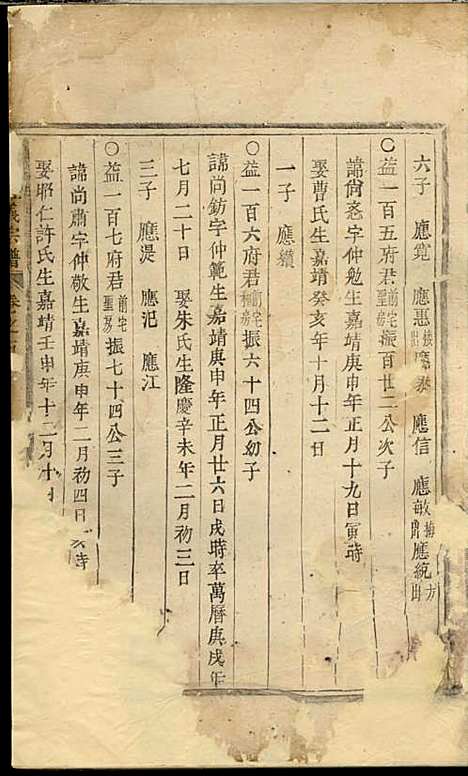 六子 應寬 應惠 應泰 應信 應敏 應統
○益一百五府君 前宅聖房 振百廿二公次子
諱尚忞字仲勉生嘉靖庚申年正月十九日寅時
娶曹氏生嘉靖癸亥年十月十二日
一子 應纘
○益一百六府君 前宅 房 振六十四公幼子
諱尚鈁字仲範生嘉靖庚申年正月廿六日戌時卒萬曆庚戌年
七月二十日 娶朱氏生隆慶辛未年二月初三日
三子 應湜 應汜 應江
○益一百七府君 前宅聖房 振七十四公三子
諱尚肅字仲敬生嘉靖庚申年二月初四日 時
娶昭仁許氏生嘉靖壬申年十二月十
宗譜 卷之